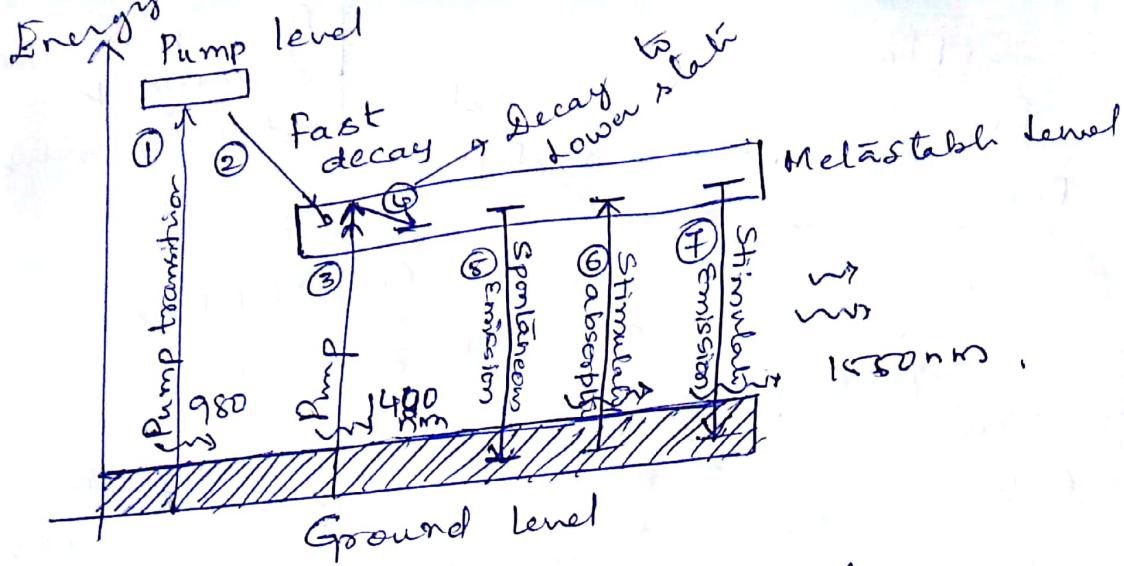 Energy
Pump level
①
②
Fast
decay
④
Decay to
Lower state
Metastable Level
Pump transition
980
③
Pump
1400
nm
⑤
Spontaneous
Emission
⑥
Stimulate
absorpti
⑦
Stimulate
Emission
1550nm.
Ground Level